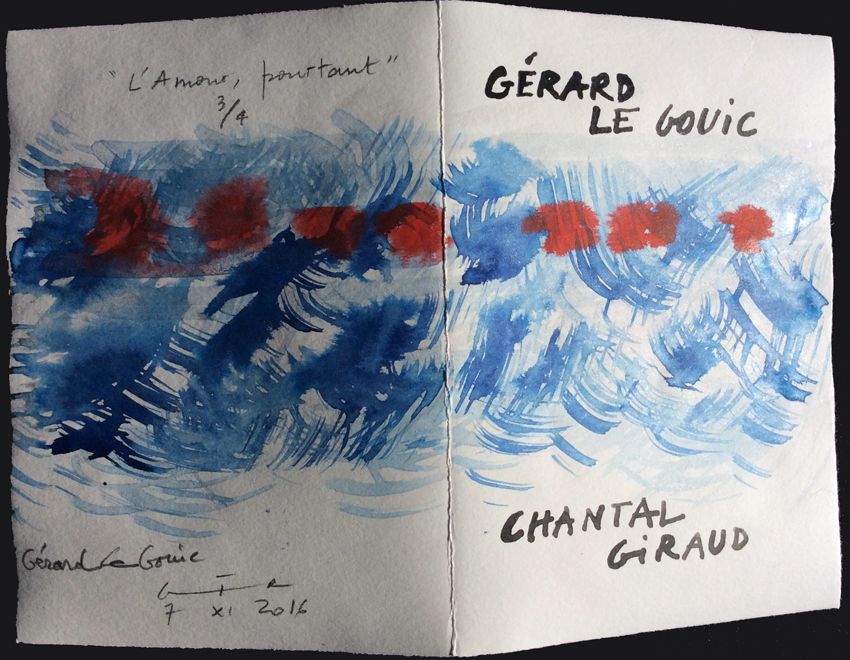 "L'Amour, pourtant"
3/4
Gérard Le Gouic
7 XI 2016
GÉRARD
LE GOUiC
CHANTAL
GiRAUD